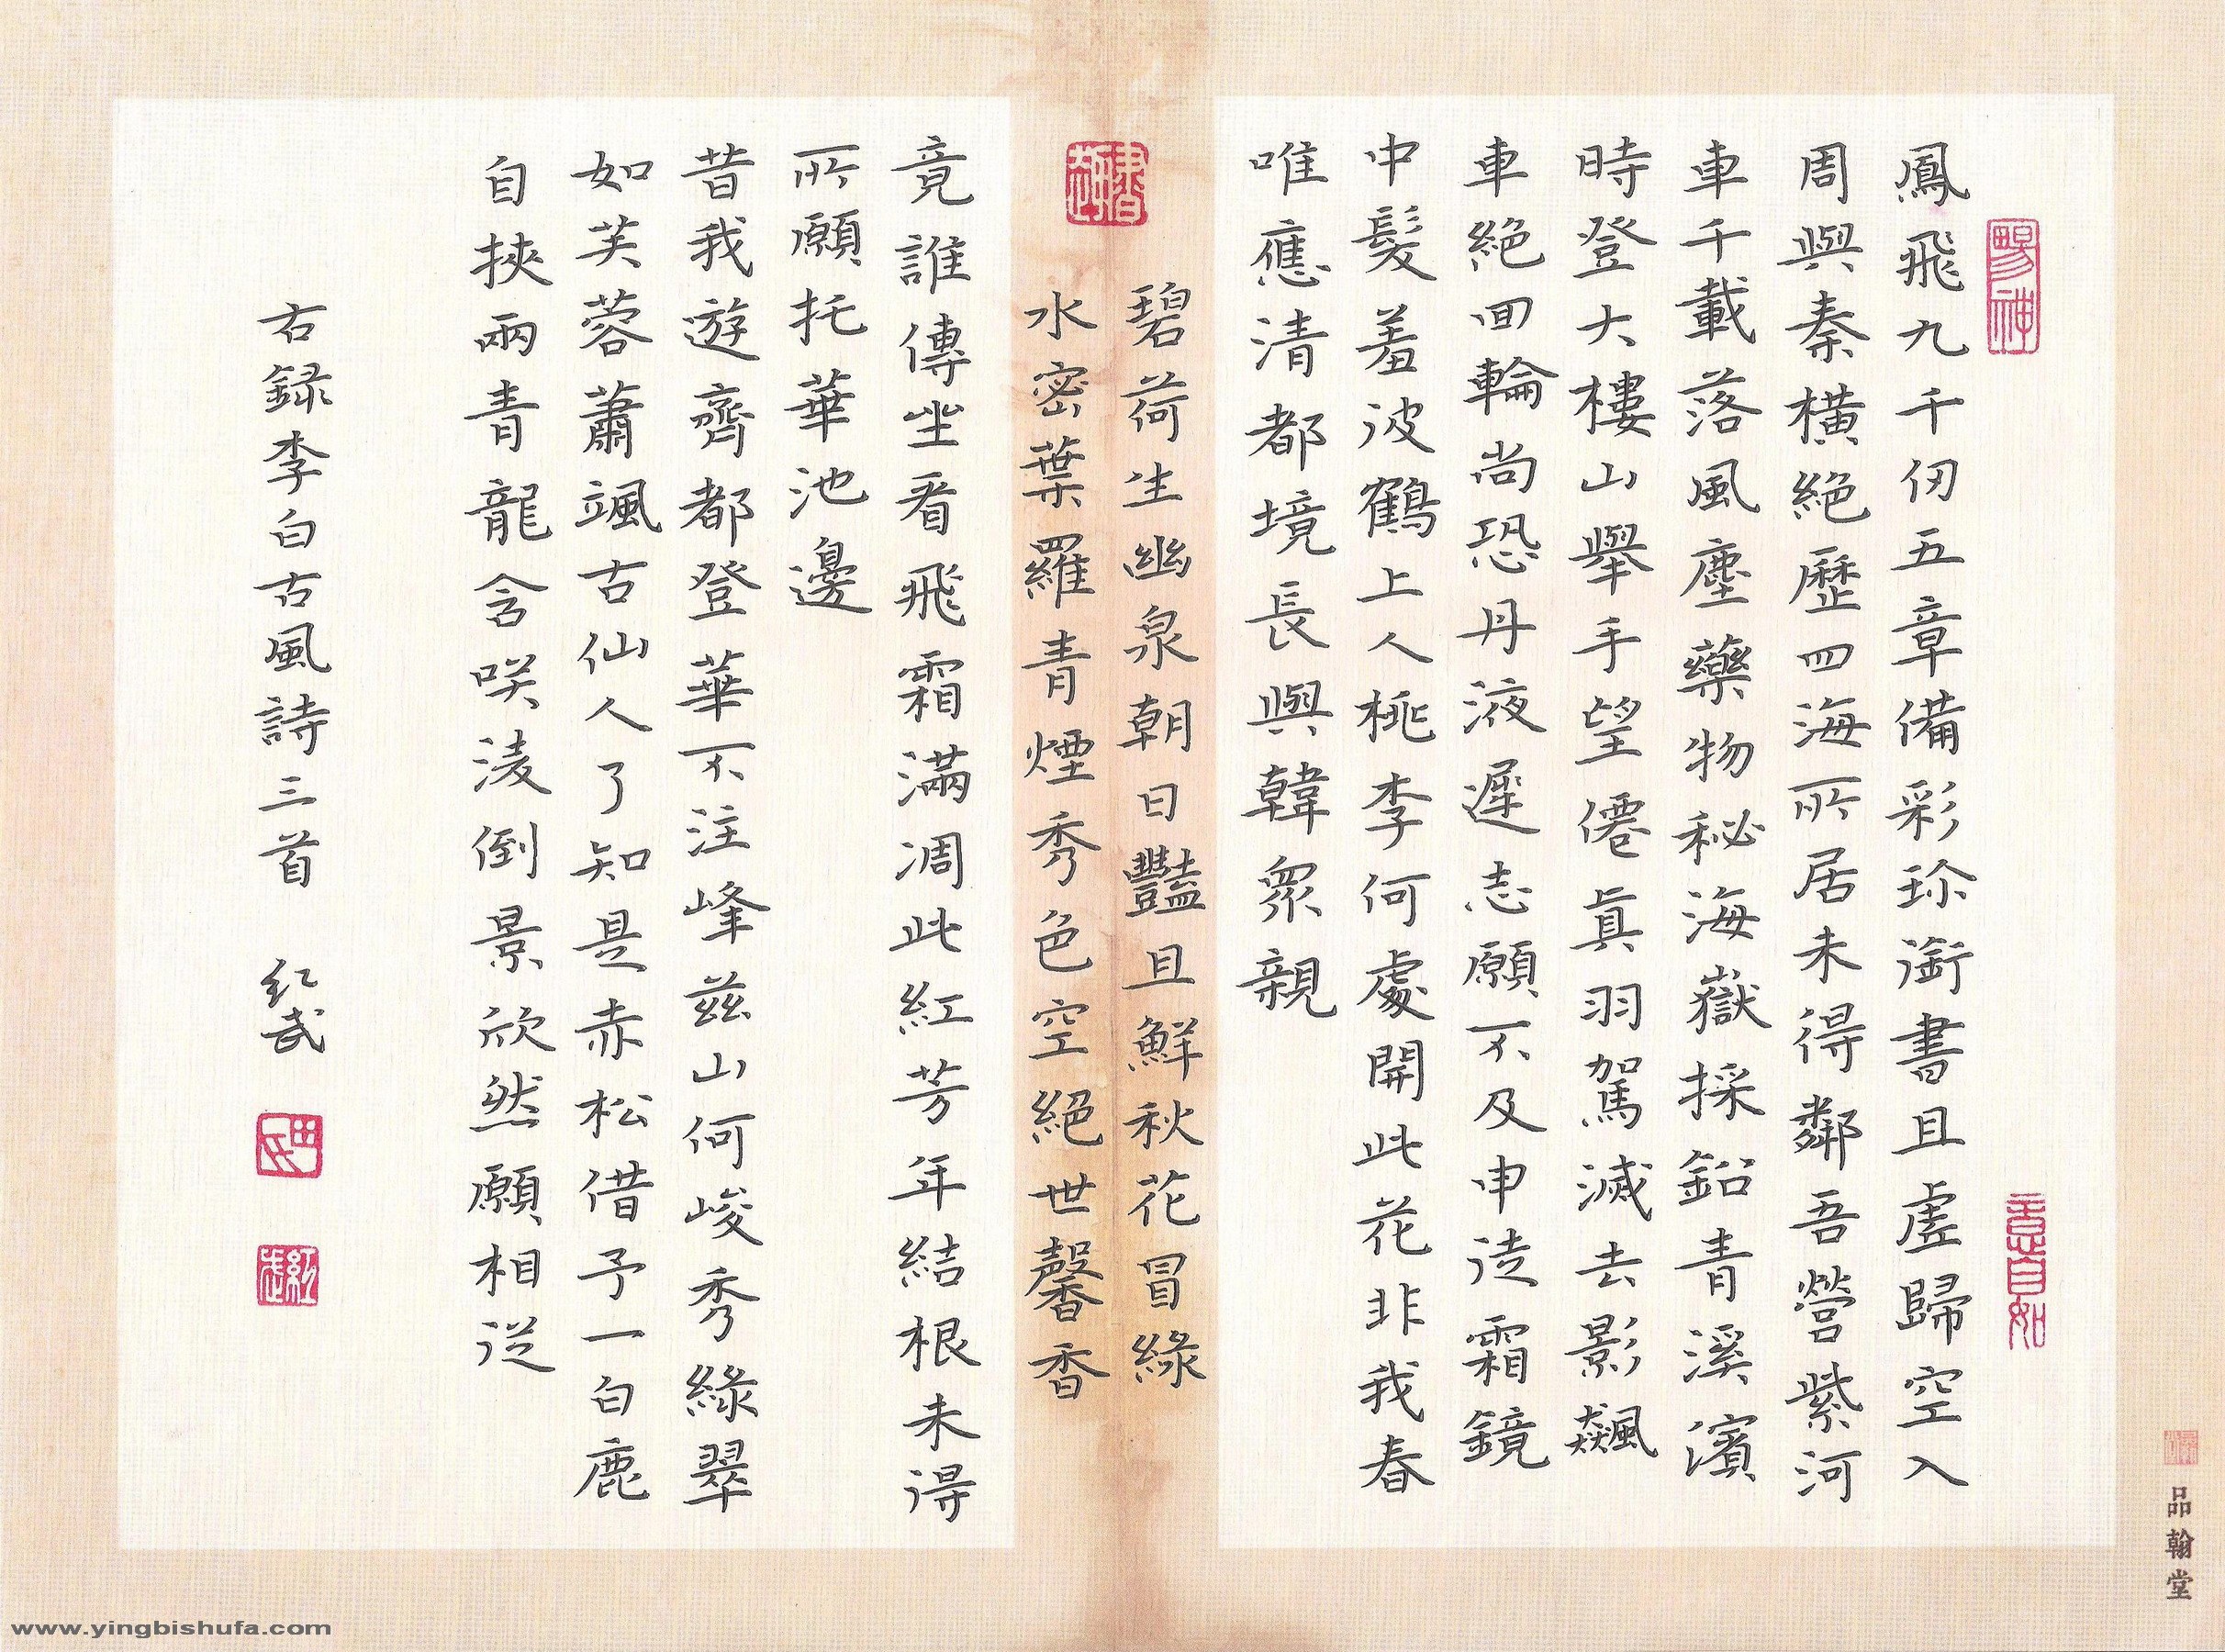 鳳飛九千仞五章備彩珍銜書且虛歸空入
周與秦橫絕歷四海所居未得鄰吾營紫河
車千載落風塵藥物秘海嶽採鉛青溪濱
時登大樓山舉手望僊眞羽駕滅去影飆
車絕回輪尚恐丹液遲志願不及申徒霜鏡
中髮羞彼鶴上人桃李何處開此花非我春
唯應清都境長與韓衆親
碧荷生幽泉朝日豔且鮮秋花冒綠
水密葉羅青煙秀色空絕世馨香
竟誰傳坐看飛霜滿凋此紅芳年結根未得
所願托華池邊
昔我遊齊都登華不注峰茲山何峻秀綠翠
如芙蓉蕭颯古仙人了知是赤松借予一白鹿
自挾兩青龍含咲淩倒景欣然願相從
右録李白古風詩三首 紅武
品翰堂
www.yingbishufa.com